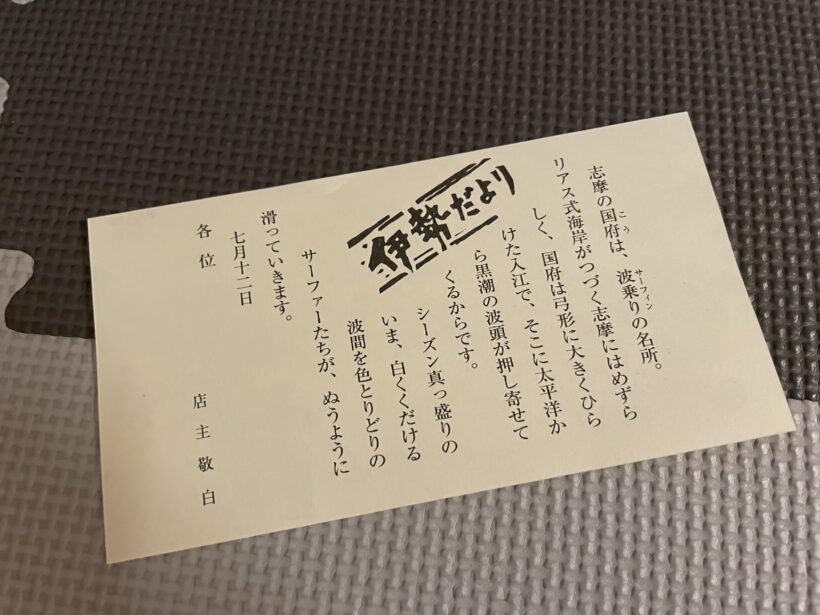 伊勢だより
志摩の国府は、波乗りの名所。
こう
サーフィン
リアス式海岸がつづく志摩にはめずら
しく、国府は弓形に大きくひら
けた入江で、そこに太平洋か
ら黒潮の波頭が押し寄せて
くるからです。
シーズン真っ盛りの
いま、白くくだける
波間を色とりどりの
サーファーたちが、ぬうように
滑っていきます。
七月十二日
各位
店主敬白